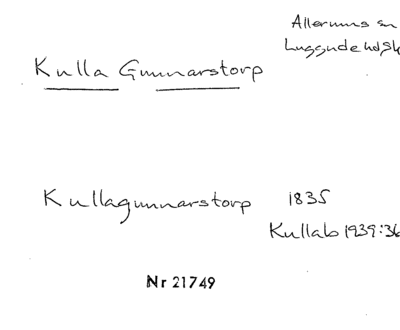 Allerums sn
Luggude hd, Sk
Kulla Gunnarstorp
Kullagunnarstorp 1835
Kullab 1939:36
Nr 21749